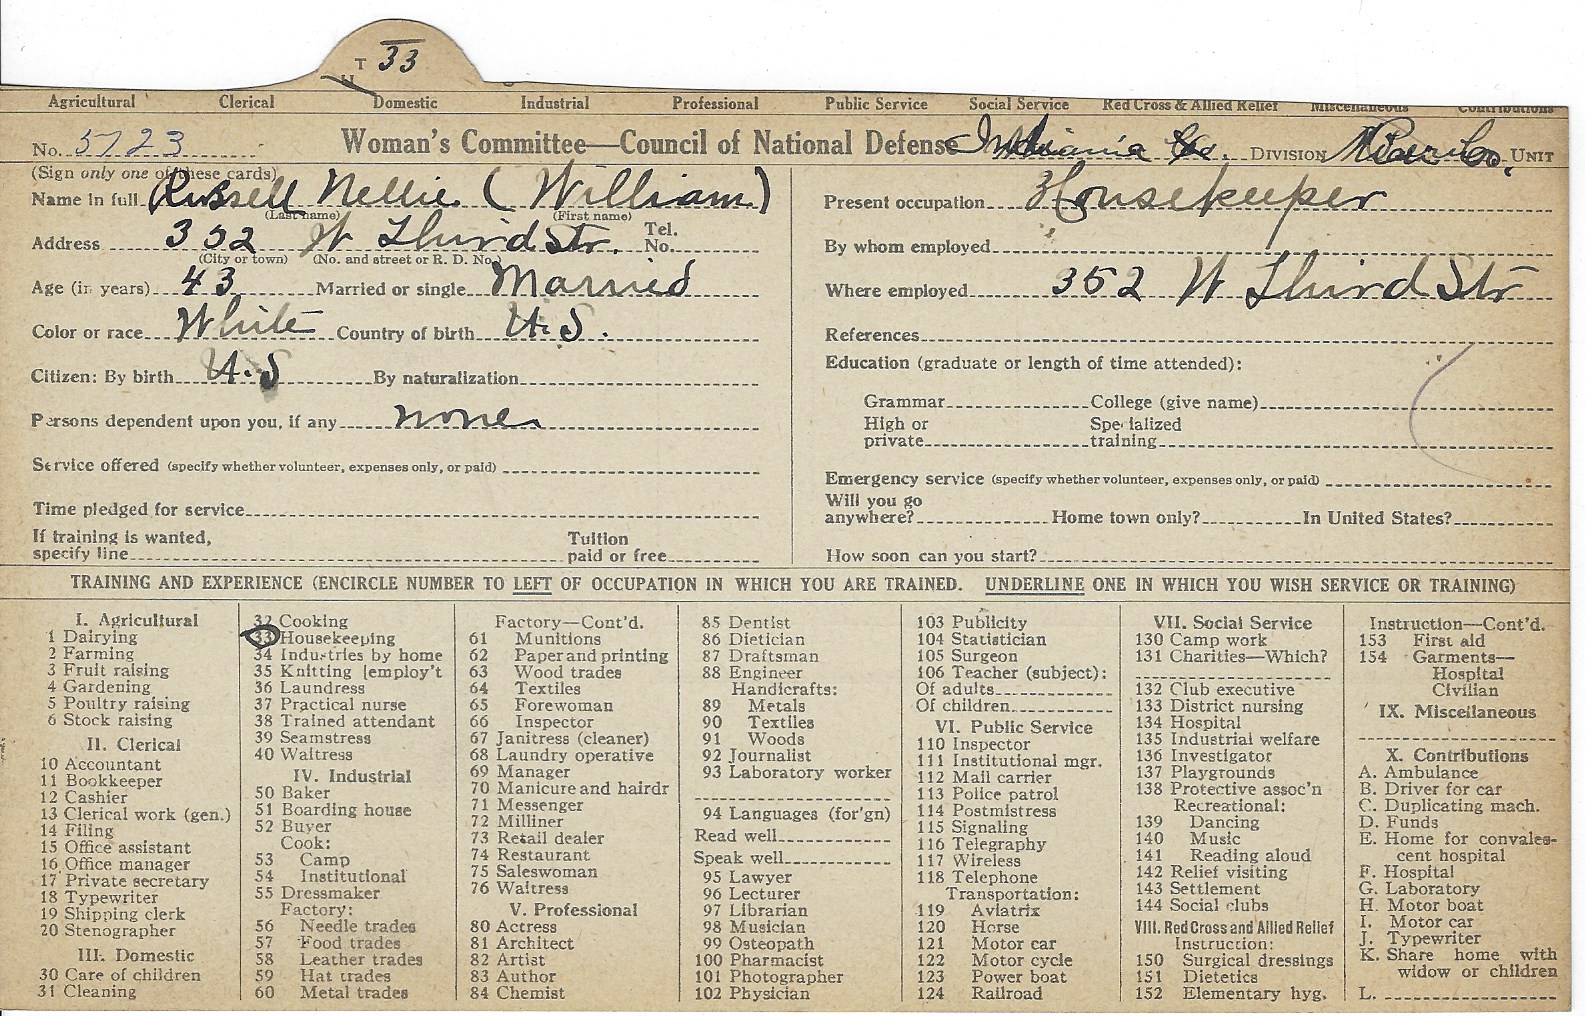 T 33
Agricultural Clerical Domestic Industrial Professional Public Service Social Service Red Cross & Allied Relief Miscellaneous Contributions
No. 5723 Woman's Committee—Council of National Defense Indiana DIVISION UNIT
(Sign only one of these cards)
Name in full Russell Nellie (William)
(Last name) (First name)
Address 352 W Third Str. Tel. No.
(City or town) (No. and street or R. D. No.)
Age (in years) 43 Married or single Married
Color or race White Country of birth U.S.
Citizen: By birth U.S By naturalization
Persons dependent upon you, if any none
Service offered (specify whether volunteer, expenses only, or paid)
Time pledged for service
If training is wanted, specify line Tuition paid or free
Present occupation Housekeeper
By whom employed
Where employed 352 W Third Str
References
Education (graduate or length of time attended):
Grammar College (give name)
High or private Specialized training
Emergency service (specify whether volunteer, expenses only, or paid)
Will you go anywhere? Home town only? In United States?
How soon can you start?
TRAINING AND EXPERIENCE (ENCIRCLE NUMBER TO LEFT OF OCCUPATION IN WHICH YOU ARE TRAINED. UNDERLINE ONE IN WHICH YOU WISH SERVICE OR TRAINING)
I. Agricultural
1 Dairying
2 Farming
3 Fruit raising
4 Gardening
5 Poultry raising
6 Stock raising
II. Clerical
10 Accountant
11 Bookkeeper
12 Cashier
13 Clerical work (gen.)
14 Filing
15 Office assistant
16 Office manager
17 Private secretary
18 Typewriter
19 Shipping clerk
20 Stenographer
III. Domestic
30 Care of children
31 Cleaning
32 Cooking
33 Housekeeping
34 Industries by home
35 Knitting [employ't
36 Laundress
37 Practical nurse
38 Trained attendant
39 Seamstress
40 Waitress
IV. Industrial
50 Baker
51 Boarding house
52 Buyer
Cook:
53 Camp
54 Institutional
55 Dressmaker
Factory:
56 Needle trades
57 Food trades
58 Leather trades
59 Hat trades
60 Metal trades
Factory—Cont'd.
61 Munitions
62 Paper and printing
63 Wood trades
64 Textiles
65 Forewoman
66 Inspector
67 Janitress (cleaner)
68 Laundry operative
69 Manager
70 Manicure and hairdr
71 Messenger
72 Milliner
73 Retail dealer
74 Restaurant
75 Saleswoman
76 Waitress
V. Professional
80 Actress
81 Architect
82 Artist
83 Author
84 Chemist
85 Dentist
86 Dietician
87 Draftsman
88 Engineer
Handicrafts:
89 Metals
90 Textiles
91 Woods
92 Journalist
93 Laboratory worker
94 Languages (for'gn)
Read well
Speak well
95 Lawyer
96 Lecturer
97 Librarian
98 Musician
99 Osteopath
100 Pharmacist
101 Photographer
102 Physician
103 Publicity
104 Statistician
105 Surgeon
106 Teacher (subject):
Of adults
Of children
VI. Public Service
110 Inspector
111 Institutional mgr.
112 Mail carrier
113 Police patrol
114 Postmistress
115 Signaling
116 Telegraphy
117 Wireless
118 Telephone
Transportation:
119 Aviatrix
120 Horse
121 Motor car
122 Motor cycle
123 Power boat
124 Railroad
VII. Social Service
130 Camp work
131 Charities—Which?
132 Club executive
133 District nursing
134 Hospital
135 Industrial welfare
136 Investigator
137 Playgrounds
138 Protective assoc'n
Recreational:
139 Dancing
140 Music
141 Reading aloud
142 Relief visiting
143 Settlement
144 Social clubs
VIII. Red Cross and Allied Relief
Instruction:
150 Surgical dressings
151 Dietetics
152 Elementary hyg.
Instruction—Cont'd.
153 First aid
154 Garments—
Hospital
Civilian
IX. Miscellaneous
X. Contributions
A. Ambulance
B. Driver for car
C. Duplicating mach.
D. Funds
E. Home for convales-
cent hospital
F. Hospital
G. Laboratory
H. Motor boat
I. Motor car
J. Typewriter
K. Share home with
widow or children
L.